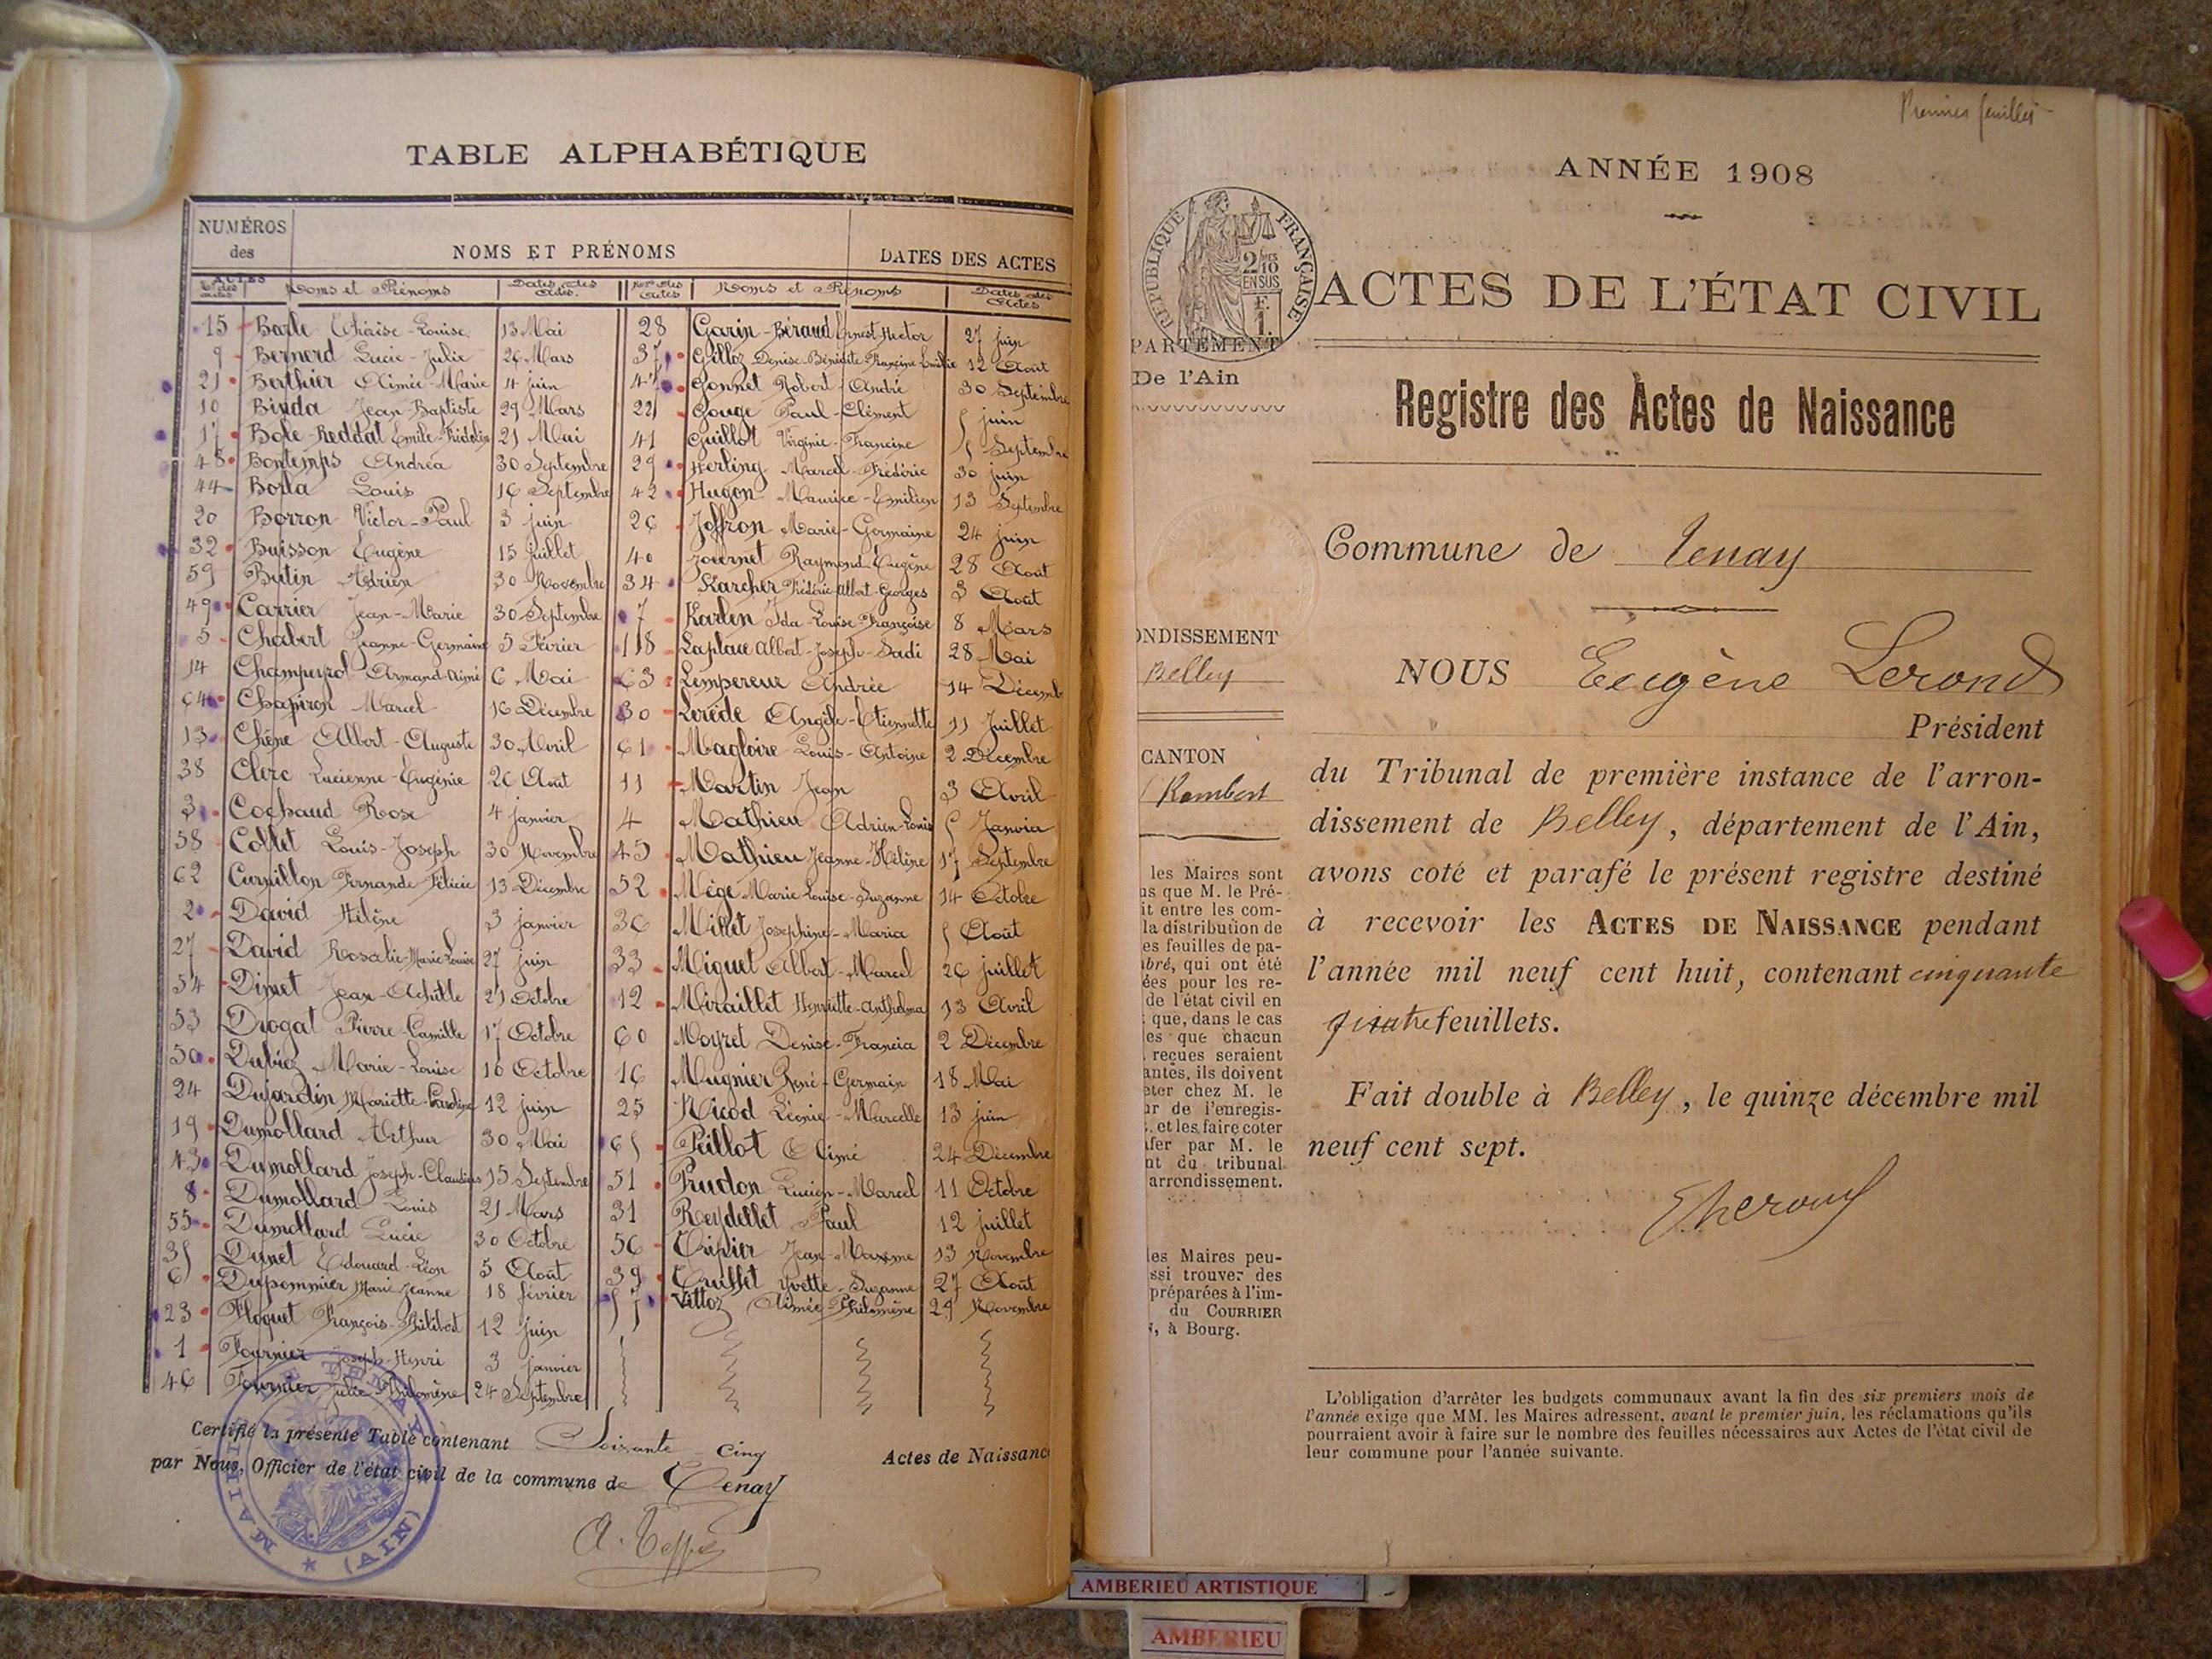 TABLE ALPHABÉTIQUE
NUMÉROS des ACTES NOMS ET PRÉNOMS DATES DES ACTES
Nos des actes Noms et Prénoms Dates des Actes. Nos des Actes Noms et Prénoms Dates des Actes
15 Barle Thérèse-Louise 13 Mai 28 Garin-Béraud Ernest-Hector 27 juin
9 Bernerd Lucie-Julie 26 Mars 37 Gilloz Denise-Bénédite-Françine-Emélie 12 Août
21 Berthier Aimée-Marie 4 juin 47 Gonnet Robert-André 30 Septembre
10 Binda Jean-Baptiste 29 Mars 22 Gouge Paul-Clément 5 juin
17 Bole-Reddat Emile-Fridolin 21 Mai 41 Guillot Virginie-Francine 5 Septembre
48 Bontemps Andréa 30 Septembre 29 Herling Marcel-Frédéric 30 juin
44 Borla Louis 16 Septembre 42 Hugon Maurice-Emilien 13 Septembre
20 Borron Victor-Paul 3 juin 26 Joffron Marie-Germaine 24 juin
32 Buisson Eugène 15 juillet 40 Journet Raymond-Eugène 28 Août
59 Butin Adrien 30 Novembre 34 Karcher Frédéric-Albert-Georges 3 Août
49 Carrier Jean-Marie 30 Septembre 7 Karlen Ida-Louise-Françoise 8 Mars
5 Chabert Jeanne-Germaine 5 Février 18 Laplace Albert-Joseph-Sadi 28 Mai
14 Champeyrol Armand-Aimé 6 Mai 63 Lempereur Andrée 14 Décemb
64 Chapiron Marcel 16 Décembre 30 Lerède Angèle-Etiennette 11 Juillet
13 Chêne Albert-Auguste 30 Avril 61 Magloire Louis-Antoine 2 Décembre
38 Clerc Lucienne-Eugénie 26 Août 11 Martin Jean 3 Avril
3 Cochaud Rose 4 janvier 4 Mathieu Adrien-Louis 5 Janvier
58 Collet Louis-Joseph 30 Novembre 45 Mathieu Jeanne-Hélène 17 Septembre
62 Curnillon Fernande-Félicie 13 Décembre 52 Mège Marie-Louise-Suzanne 14 Octobre
2 David Hélène 3 janvier 36 Millet Josephine-Maria 5 Août
27 David Rosalie-Marie-Louise 27 juin 33 Miguet Albert-Marcel 26 juillet
54 Dimet Jean-Achille 21 Octobre 12 Miraillet Henriette-Anthelma 13 Avril
53 Drogat Pierre-Camille 17 Octobre 60 Moyret Denise-Francia 2 Décembre
50 Dubiez Marie-Louise 10 Octobre 16 Mugnier René-Germain 18 Mai
24 Dujardin Mariette-Caroline 12 juin 25 Nicod Léonie-Marcelle 13 juin
19 Dumollard Arthur 30 Mai 65 Peillot Aimé 24 Décembre
43 Dumollard Joseph-Claudius 15 Septembre 51 Prudon Lucien-Marcel 11 Octobre
8 Dumollard Louis 21 Mars 31 Reydellet Paul 12 juillet
55 Dumollard Lucie 30 Octobre 56 Tripier Jean-Maxime 13 Novembre
35 Dunet Edouard-Léon 5 Août 39 Truffet Yvette-Suzanne 27 Août
6 Dupommier Marie-Jeanne 18 février 57 Vittoz Aimée-Philomène 29 Novembre
23 Floquet François-Philibert 12 juin
1 Fournier Joseph-Henri 3 janvier
46 Fournier Julie-Philomène 24 Septembre
Certifié la présente Table contenant Soixante cinq Actes de Naissanc
par Nous, Officier de l'état civil de la commune de Tenay
MAIRIE DE TENAY * (AIN) *
Premier feuillet
ANNÉE 1908
RÉPUBLIQUE FRANÇAISE
2/10 MES EN SUS
F. 1.
ACTES DE L'ÉTAT CIVIL
PARTEMENT
De l'Ain
Registre des Actes de Naissance
Commune de Tenay
ONDISSEMENT
Belley
NOUS Eugène Lerond
Président
CANTON
Rambert
du Tribunal de première instance de l'arron-
dissement de Belley, département de l'Ain,
avons coté et parafé le présent registre destiné
à recevoir les ACTES DE NAISSANCE pendant
l'année mil neuf cent huit, contenant cinquante
quatre feuillets.
Fait double à Belley, le quinze décembre mil
neuf cent sept.
les Maires sont
us que M. le Pré-
it entre les com-
la distribution de
es feuilles de pa-
bré, qui ont été
ées pour les re-
de l'état civil en
que, dans le cas
es que chacun
reçues seraient
antes, ils doivent
eter chez M. le
ur de l'enregis-
, et les faire coter
afer par M. le
nt du tribunal
arrondissement.
les Maires peu-
ssi trouver des
préparées à l'im-
du COURRIER
, à Bourg.
L'obligation d'arrêter les budgets communaux avant la fin des six premiers mois de
l'année exige que MM. les Maires adressent, avant le premier juin, les réclamations qu'ils
pourraient avoir à faire sur le nombre des feuilles nécessaires aux Actes de l'état civil de
leur commune pour l'année suivante.
AMBERIEU ARTISTIQUE
AMBERIEU